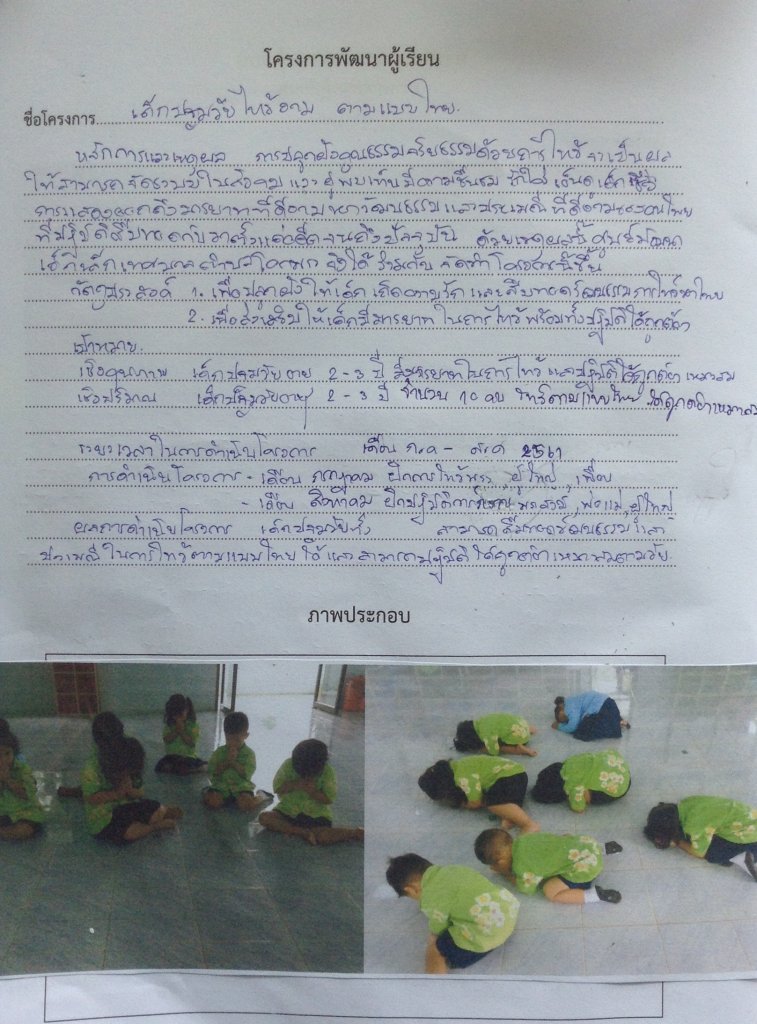 โครงการพัฒนาผู้เรียน
ชื่อโครงการ เด็กปฐมวัยไหว้งาม ตามแบบไทย
หลักการและเหตุผล การปลูกฝังคุณธรรมจริยธรรมด้วยการไหว้จะเป็นผล
ให้สามารถ ในสังคม และผู้พบเห็นมีความชื่นชม รักใคร่ เอ็นดูเด็ก
การแสดงออกถึงมารยาทที่ดีงาม วัฒนธรรมและประเพณีที่ดีงามของคนไทย
ที่ปฏิบัติสืบทอดกันมาตั้งแต่อดีตจนถึงปัจจุบัน ด้วยเหตุผลนี้ ศูนย์พัฒนา
เด็กเล็กเทศบาลตำบล จึงได้ จัดทำโครงการนี้ขึ้น
วัตถุประสงค์ 1. เพื่อปลูกฝังให้เด็กเกิดความรัก และสืบทอดวัฒนธรรมการไหว้ของไทย
2. เพื่อส่งเสริมให้เด็กมีมารยาทในการไหว้พร้อมทั้งปฏิบัติได้ถูกต้อง
เป้าหมาย
เชิงคุณภาพ เด็กปฐมวัยอายุ 2-3 ปี มีมารยาทในการไหว้และปฏิบัติได้ถูกต้อง เหมาะสม
เชิงปริมาณ เด็กปฐมวัยอายุ 2-3 ปี จำนวน 10 คน ไหว้ตามแบบไทย ได้ถูกต้องเหมาะสม
ระยะเวลาในการดำเนินโครงการ เดือน ก.ค - ส.ค 2561
การดำเนินโครงการ - เดือน กรกฎาคม ฝึกการไหว้พระ, ผู้ใหญ่, เพื่อน
- เดือน สิงหาคม ฝึกปฏิบัติการ พระสงฆ์, พ่อแม่, ผู้ใหญ่
ผลการดำเนินโครงการ เด็กปฐมวัย สามารถสืบทอดวัฒนธรรมและ
ประเพณีในการไหว้ตามแบบไทย ได้และสามารถปฏิบัติได้ถูกต้องเหมาะสมตามวัย
ภาพประกอบ